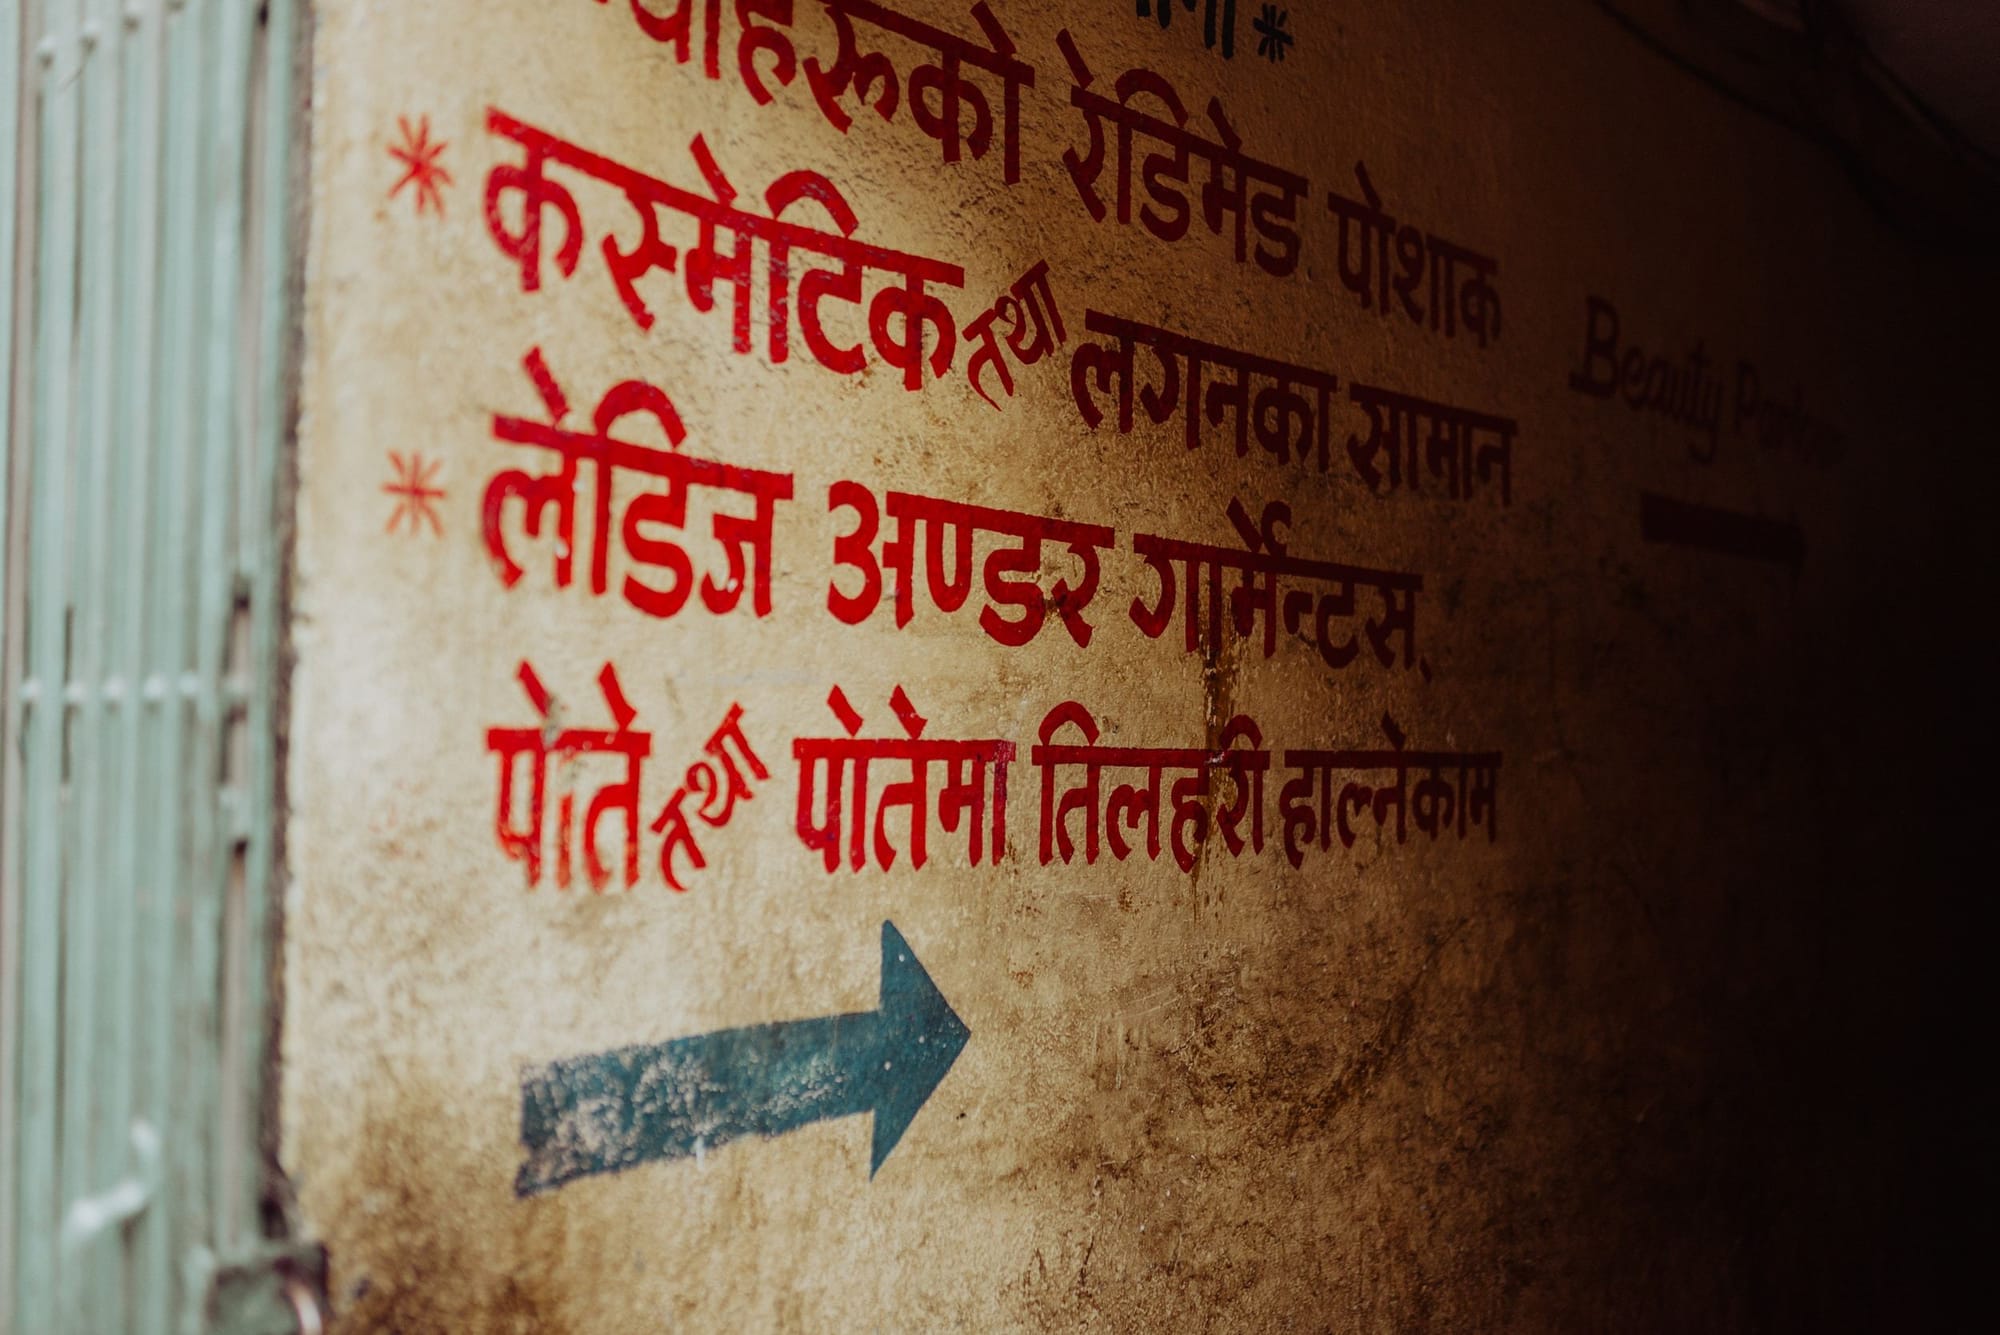 *
रेडिमेड पोशाक
* कस्मेटिक तथा लगनका सामान
* लेडिज अण्डर गार्मेन्टस्
पोते तथा पोतेमा तिलहरी हाल्नेकाम
Beauty